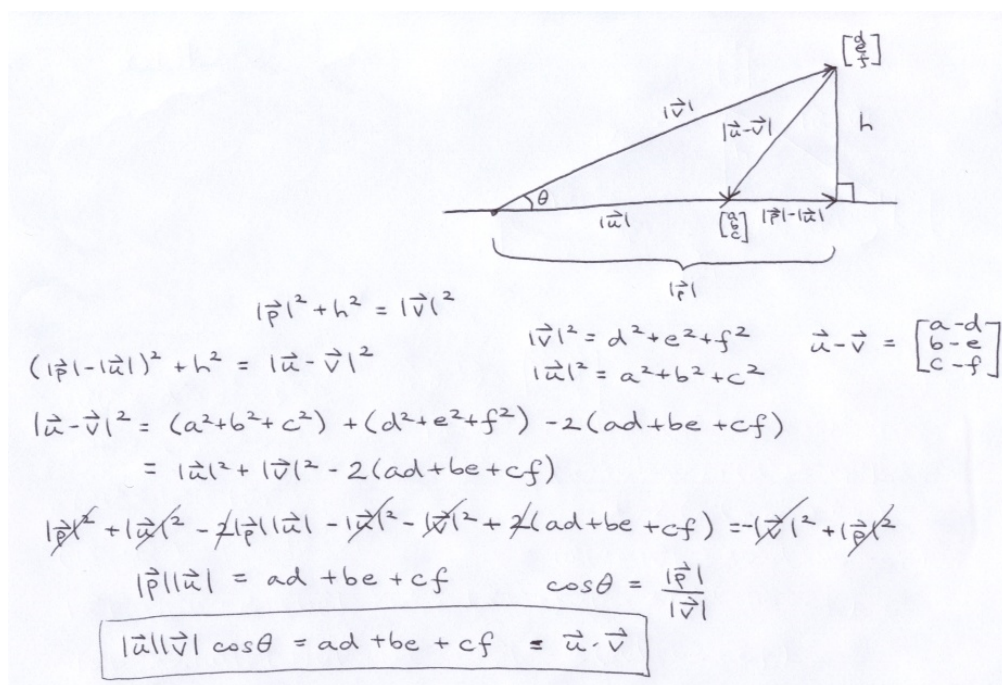 [d e f]
|v⃗|
|u⃗-v⃗|
h
θ
|u⃗|
[a b c]
|p⃗|-|u⃗|
|p⃗|
|p⃗|² + h² = |v⃗|²
|v⃗|² = d²+e²+f²
u⃗-v⃗ = [a-d b-e c-f]
(|p⃗|-|u⃗|)² + h² = |u⃗-v⃗|²
|u⃗|² = a²+b²+c²
|u⃗-v⃗|² = (a²+b²+c²) + (d²+e²+f²) - 2(ad+be+cf)
= |u⃗|² + |v⃗|² - 2(ad+be+cf)
|p⃗|² + |u⃗|² - 2|p⃗||u⃗| - |u⃗|² - |v⃗|² + 2(ad+be+cf) = -|v⃗|² + |p⃗|²
|p⃗||u⃗| = ad+be+cf
cosθ = |p⃗|/|v⃗|
|u⃗||v⃗| cosθ = ad+be+cf = u⃗·v⃗